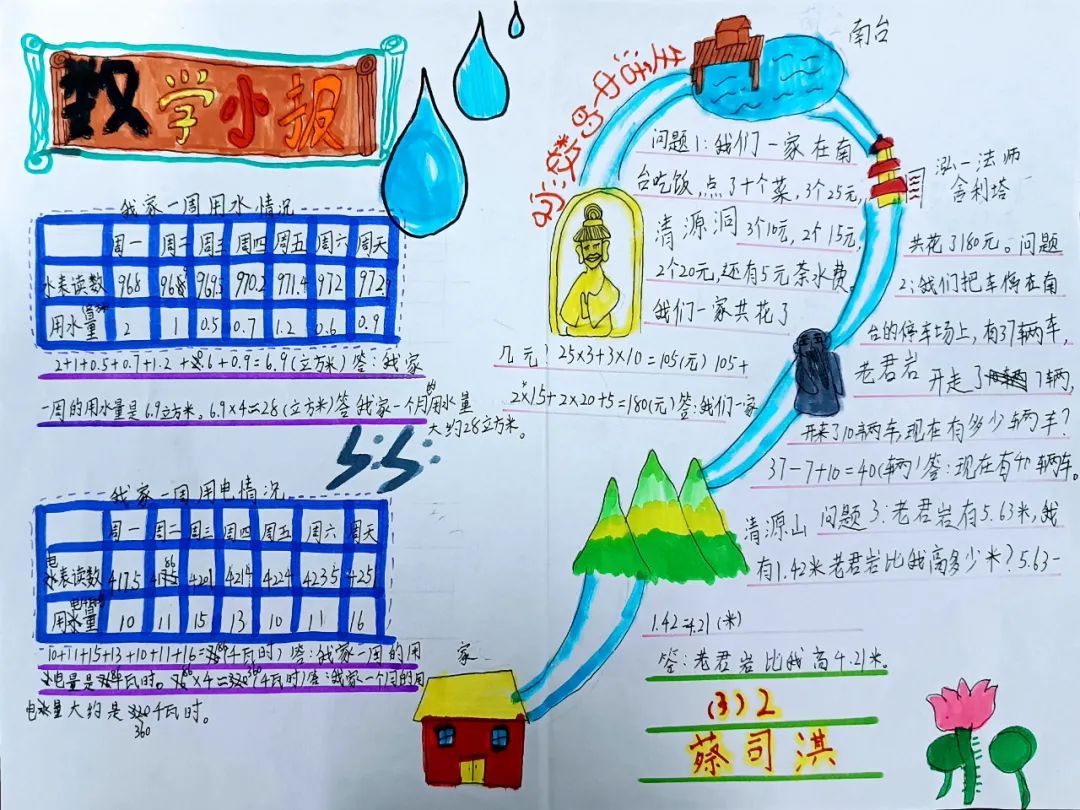 数学小报
我家一周用水情况
周一 周二 周三 周四 周五 周六 周天
水表读数 968 969.5 970.2 971.4 972 972.9
用水量 2 1 0.5 0.7 1.2 0.6 0.9
2+1+0.5+0.7+1.2+0.6+0.9=6.9(立方米)答:我家
一周的用水量是6.9立方米。6.9×4≈28(立方米)答我家一个月的用水量
大约28立方米。
我家一周用电情况
周一 周二 周三 周四 周五 周六 周天
电表读数 4175 4201 4214 4224 4235 425
用电量 10 11 15 13 10 11 16
10+11+15+13+10+11+16=86(千瓦时)答:我家一周的用
电量是86千瓦时。86×4≈360(千瓦时)答:我家一个月的用
电量大约是360千瓦时。
家
生活中的数学
南台
问题1:我们一家在南
台吃饭,点了十个菜,3个25元,
清源洞
3个10元,2个15元,
2个20元,还有5元茶水费。
我们一家共花了
几元?25×3+3×10=105(元)105+
2×15+2×20+5=180(元)答:我们一家
泓一法师
舍利塔
共花了180元。问题
2:我们把车停在南
台的停车场上,有37辆车,
老君岩
开走了7辆,
开来了10辆车,现在有多少辆车?
37-7+10=40(辆)答:现在有40辆车。
清源山
问题3:老君岩有5.63米,我
有1.42米老君岩比我高多少米?5.63-
1.42=4.21(米)
答:老君岩比我高4.21米。
(3)2
蔡司淇